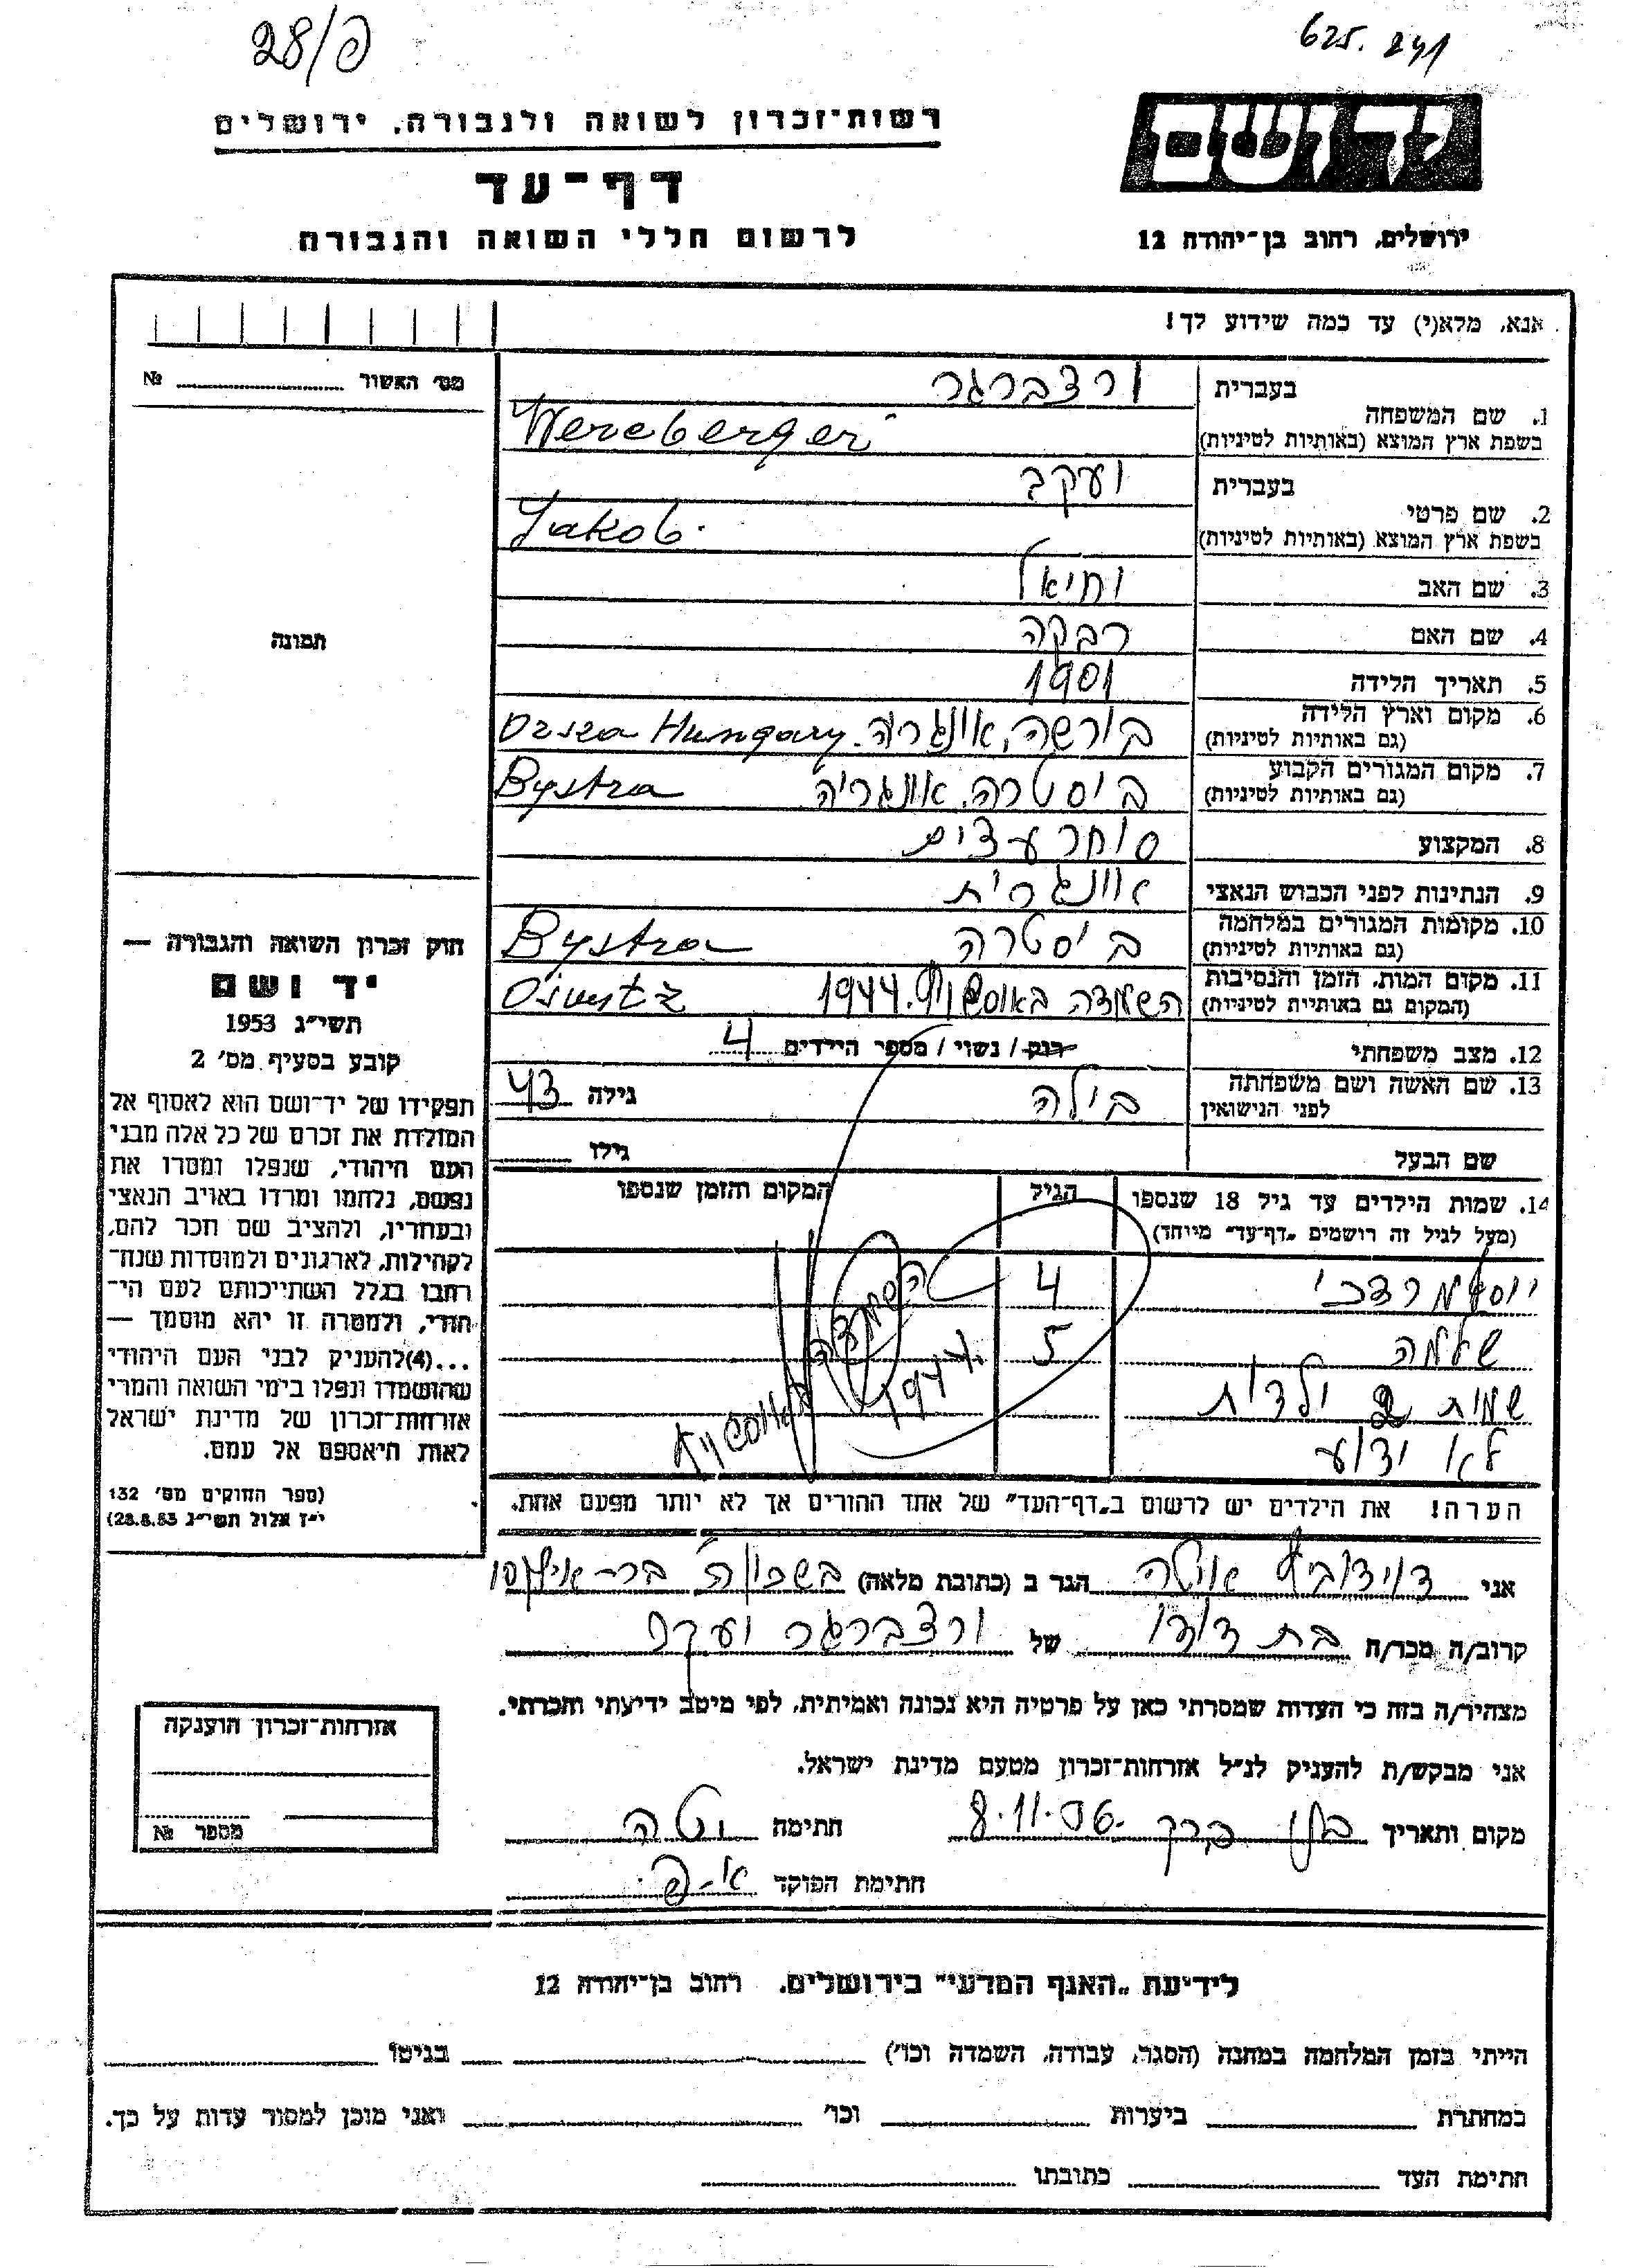 28/פ
625. 241
רשות-זכרון לשואה ולגבורה, ירושלים
דף-עד
לרשום חללי השואה והגבורה
ידושם
ירושלים, רחוב בן-יהודה 12
אנא, מלא(י) עד כמה שידוע לך!
מס׳ האשור № 
תמונה
חוק זכרון השואה והגבורה —
יד ושם
תשי״ג 1953
קובע בסעיף מס׳ 2
תפקידו של יד-ושם הוא לאסוף אל
המולדת את זכרם של כל אלה מבני
העם היהודי, שנפלו ומסרו את
נפשם, נלחמו ומרדו באויב הנאצי
ובעוזריו, ולהציב שם וזכר להם,
לקהילות, לארגונים ולמוסדות שנח-
רבו בגלל השתייכותם לעם הי-
הודי, ולמטרה זו יהא מוסמך —
...(4)להעניק לבני העם היהודי
שהושמדו ונפלו בימי השואה והמרי
אזרחות-זכרון של מדינת ישראל
לאות היאספם אל עמם.
(ספר החוקים מס׳ 132
י״ז אלול תשי״ג 28.8.53)
בעברית ורצברגר
1. שם המשפחה
בשפת ארץ המוצא (באותיות לטיניות) Wereberger
בעברית יעקב
2. שם פרטי
בשפת ארץ המוצא (באותיות לטיניות) Jakob.
3. שם האב יחיאל
4. שם האם רבקה
5. תאריך הלידה 1901
6. מקום וארץ הלידה בורשה, אונגריה. Hungary
(גם באותיות לטיניות)
7. מקום המגורים הקבוע ביסטרה, אונגריה Bystra
(גם באותיות לטיניות)
8. המקצוע סוחר עצים
9. הנתינות לפני הכבוש הנאצי אונגרית
10. מקומות המגורים במלחמה ביסטרה Bystra
(גם באותיות לטיניות)
11. מקום המות, הזמן והנסיבות השמדה באוסשויץ. 1944
(המקום גם באותיות לטיניות)
12. מצב משפחתי רווק / נשוי / מספר הילדים 4
13. שם האשה ושם משפחתה בילה גילה 43
לפני הנישואין
שם הבעל גילו
14. שמות הילדים עד גיל 18 שנספו הגיל המקום והזמן שנספו
(מעל לגיל זה רושמים „דף-עד״ מיוחד)
יוסף מרדכי 4
שלמה 5
שמות 2 ילדות
לא ידוע
השמדה באוסשויץ
1944.
הערה! את הילדים יש לרשום ב„דף-העד״ של אחד ההורים אך לא יותר מפעם אחת.
אני דוידוביץ הגר ב (כתובת מלאה)
קרוב/ה מכר/ה בת דודו של ורצברגר יעקב
מצהיר/ה בזה כי העדות שמסרתי כאן על פרטיה היא נכונה ואמיתית, לפי מיטב ידיעתי והכרתי.
אני מבקש/ת להעניק לנ״ל אזרחות-זכרון מטעם מדינת ישראל.
מקום ותאריך בני ברק 8.11.56. חתימה
חתימת הפוקד א-פ.
אזרחות-זכרון הוענקה
מספר №
לידיעת „האגף המדעי״ בירושלים, רחוב בן-יהודה 12
הייתי בזמן המלחמה במחנה (הסגר, עבודה, השמדה וכו׳) בגיטו
במחתרת ביערות וכו׳ ואני מוכן למסור עדות על כך.
חתימת העד כתובתו